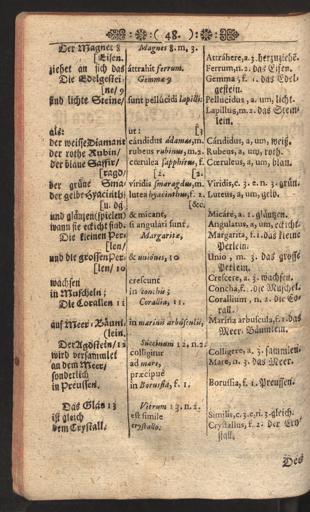 ( 48. )
Der Magnet 8 Magnes 8. m. 3.
[Eisen. Attráhere, a. 3. herzuziehē.
ziehet an sich das áttrahit ferrum. Ferrum, n. 2. das Eisen.
Die Edelgestei- Gemmæ 9 Gemma, f. 1. das Edel-
[ne/ 9 gestein.
und lichte Steine/ sunt pellucidi lapilli: Pellucidus, a. um, licht.
Lapillus, m. 2. das Stein-
lein.
als: ut: [3
der weisse Diamant cándidus ádamas, m. Cándidus, a, um, weiß.
der rothe Rubin/ rubeus rubinus, m. 2. Rubeus, a, um, roth.
der blaue Saffir/ cœrulea sapphirus, f. Cœruleus, a, um, blau.
[ragd/ [2. [2.
der grüne Sma- viridis smaragdus, m. Viridis, c. 3. e. n. 3. grün.
der gelbe Hyacinth; lutea hyacinthus, f. 2. Luteus, a, um, gelb.
[u. dg. [&c.
und glänzen (spielen) & micant, Micáre, a. 1. gläntzen.
wann sie eckicht sind. si angulari sunt. Angulatus, a, um, eckicht.
Die kleinen Per- Margaritæ, Margarita, f. 1. das kleine
[len/ Perlein.
und die grossen Per- & uniónes, 10 Unio, m. 3. das grosse
[len/ 10 Perlein.
wachsen crescunt Crescere, a. 3. wachsen.
in Muscheln; in conchis; Concha, f. die Muschel.
Die Corallen 11 Corallia, 11. Corallium, n. 2. die Co-
rall.
auf Meer-Bäuml- in marinis arbúsculis, Marina arbuscula, f. 1. das
[lein. Meer-Bäumlein.
Der Agstein/ 12 Succinum 12. n. 2.
wird versammlet colligitur Colligere, a. 3. sammlen.
an dem Meer/ ad mare, Mare, n. 3. das Meer.
sonderlich præcipuè
in Preussen. in Borussia, f. 1. Borussia, f. 1. Preussen.
Das Glas 13 Vitrum 13. n. 2.
ist gleich est simile Similis, c. 3. e, n. 3. gleich.
dem Crystall. crystallo. Crystallus, f. 2. der Cry-
stall.